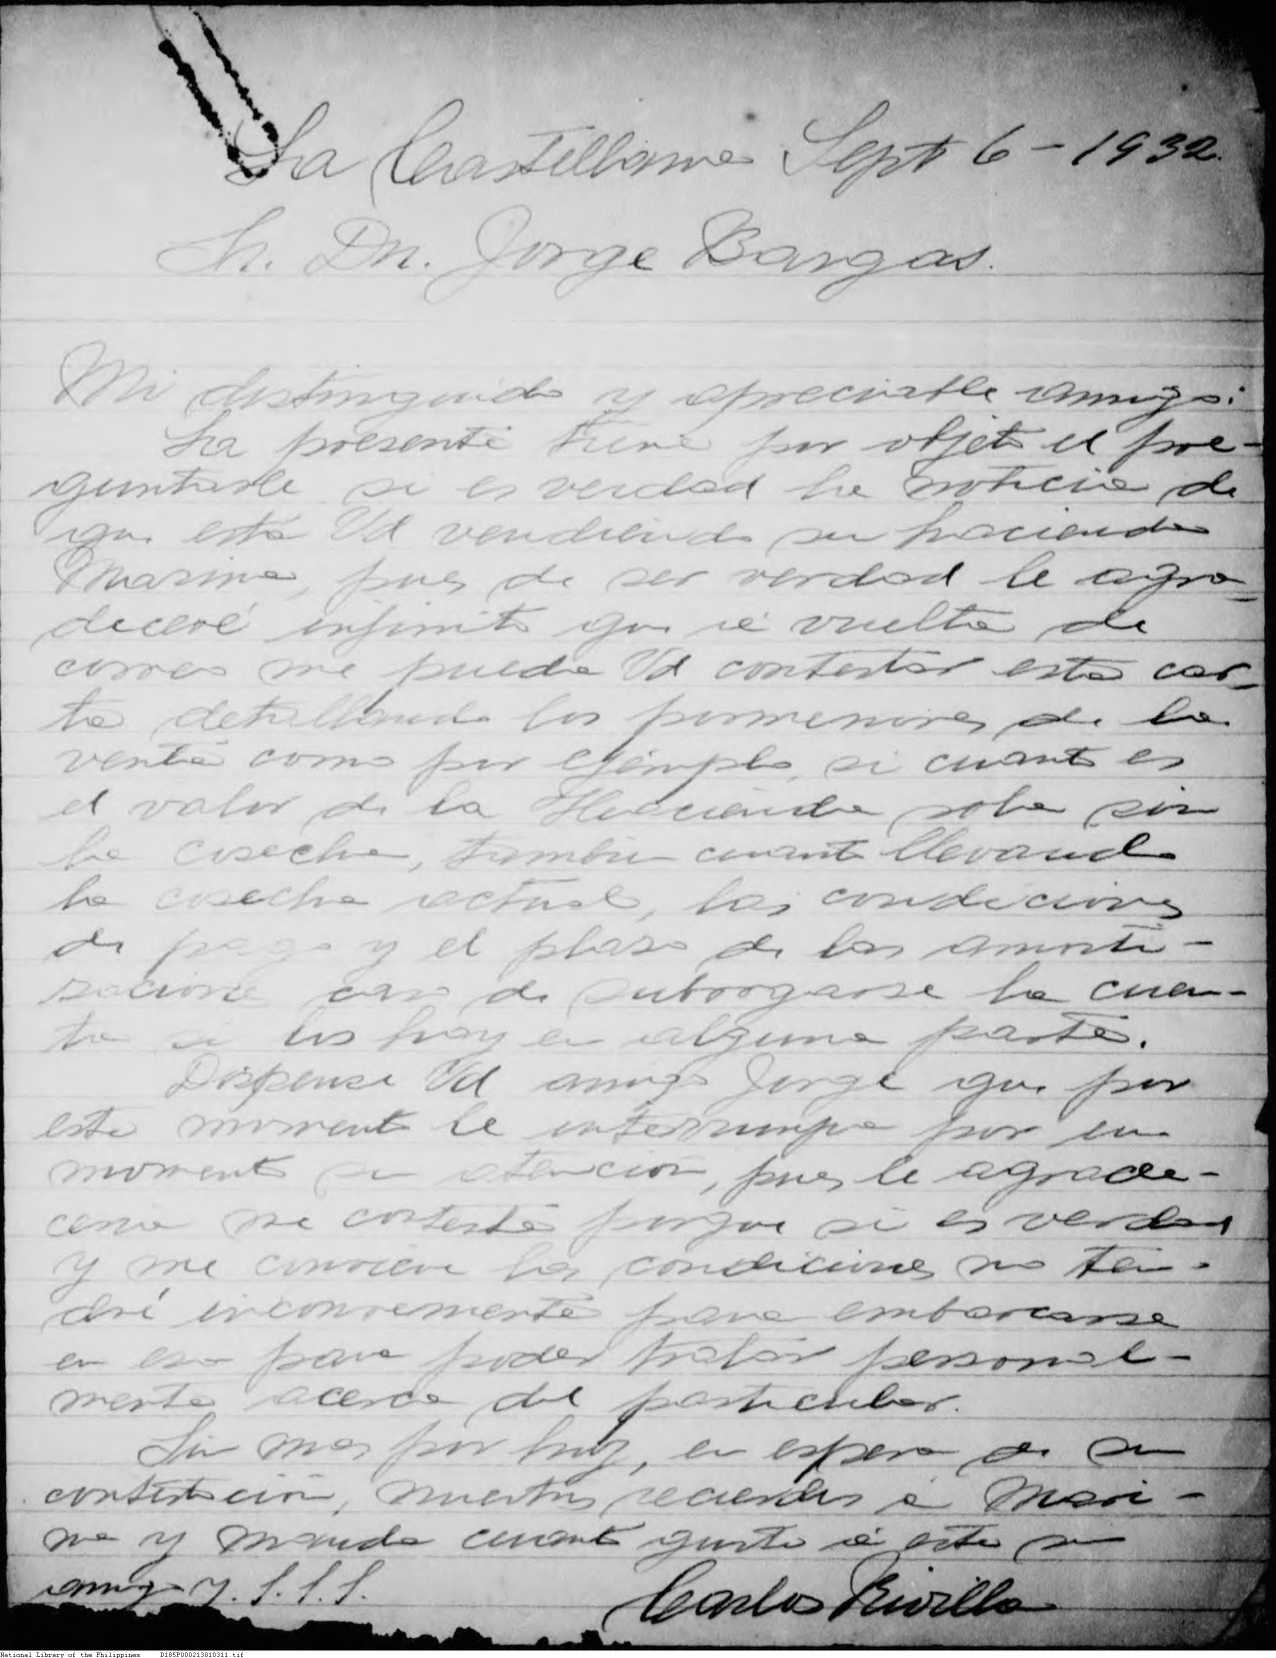 La Castellana Sept 6 - 1932.
Sr. Dn. Jorge Bargas.
Mi distinguido y apreciable amigo:
La presente tiene por objeto el pre-
guntarle si es verdad la noticia de
que está Vd vendiendo su hacienda
Marina, pues de ser verdad le agra-
deceré infinito que á vuelta de
correo me pueda Vd contestar esta car-
ta detallando los pormenores de la
venta como por ejemplo, si cuanto es
el valor de la Hacienda sola sin
la cosecha, tambien cuanto llevando
la cosecha actual, las condiciones
de pago y el plaso de las amorti-
saciones caso de subrogarse la cuen-
ta si los hay en alguna parte.
Dispense Vd amigo Jorge que por
este momento le interrumpa por un
momento su atención, pues le agrade-
ceria me conteste porque si es verdad
y me conviene las condiciones no ten-
dré inconveniente para embarcarse
en esa para poder tratar personal-
mente acerca del particular.
Sin mas por hoy, en espera de su
contestación, nuestros recuerdos á Mari-
na y mande cuanto guste á este su
amigo y. S.S.S.
Carlos Rivilla
National Library of the Philippines D185P000213810311.tif